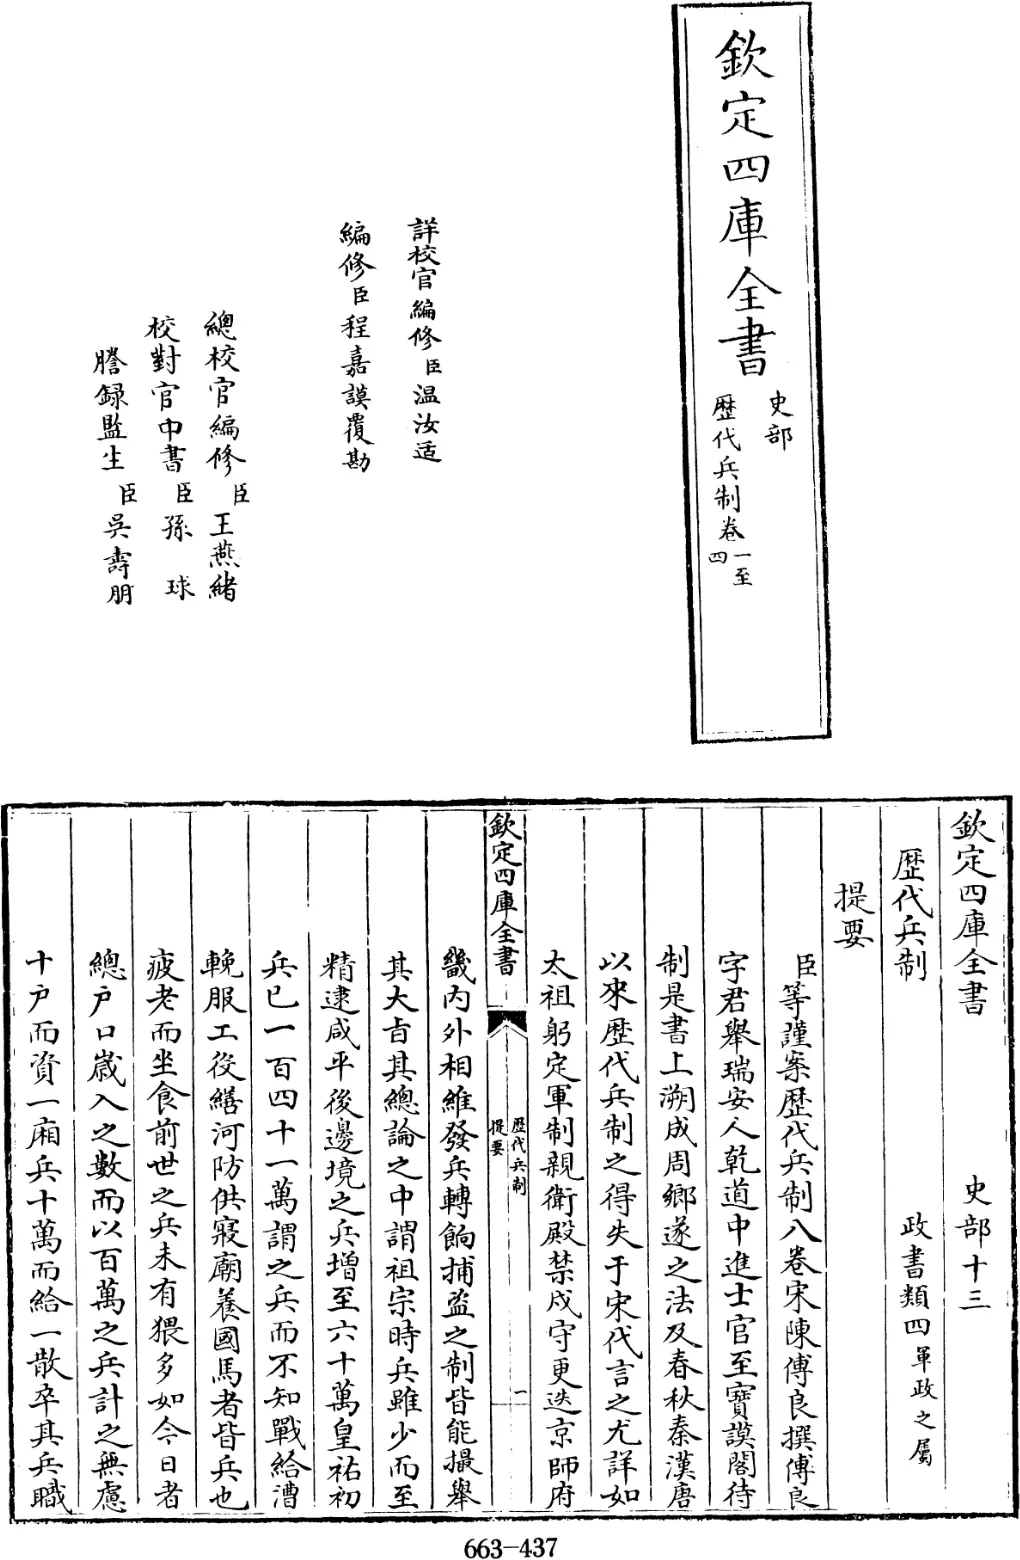 欽定四庫全書
史部
歷代兵制卷一至四
詳校官編修臣温汝适
編修臣程嘉謨覆勘
總校官編修臣王燕緒
校對官中書臣孫球
謄録監生臣吳壽朋
欽定四庫全書 史部十三
歷代兵制 政書類四軍政之屬
提要
臣等謹案歷代兵制八卷宋陳傅良撰傅良
字君舉瑞安人乾道中進士官至寶謨閣待
制是書上溯成周鄉遂之法及春秋秦漢唐
以來歷代兵制之得失于宋代言之尤詳如
太祖躬定軍制親衛殿禁戍守更迭京師府
欽定四庫全書
歷代兵制
提要
一
畿内外相維發兵轉餉捕盜之制皆能撮舉
其大㫖其總論之中謂祖宗時兵雖少而至
精逮咸平後邊境之兵增至六十萬皇祐初
兵已一百四十一萬謂之兵而不知戰給漕
輓服工役繕河防供寢廟養國馬者皆兵也
疲老而坐食前世之兵未有猥多如今日者
總户口嵗入之數而以百萬之兵計之無慮
十户而資一廂兵十萬而給一散卒其兵職
663-437